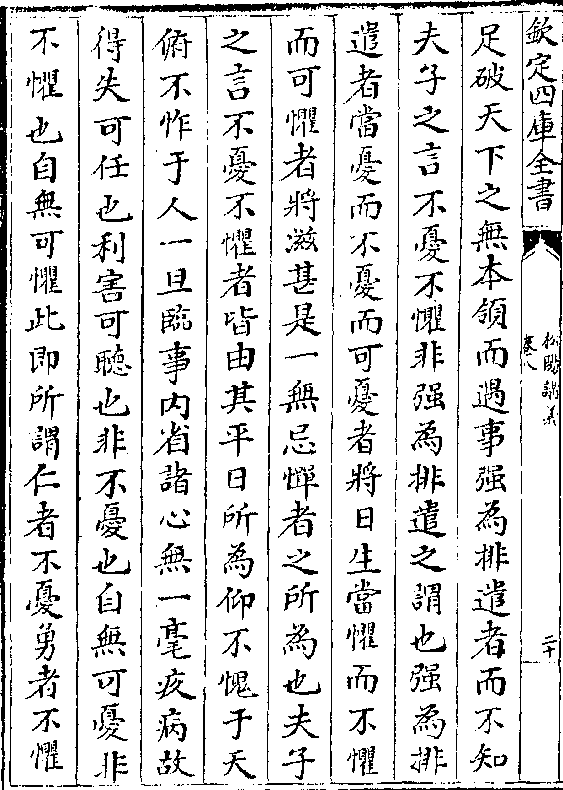 欽定四庫全書
松陽講義
卷八
二十
足破天下之無本領而遇事强為排遣者而不知
夫子之言不憂不懼非强為排遣之謂也强為排
遣者當憂而不憂而可憂者將日生當懼而不懼
而可懼者將滋甚是一無忌憚者之所為也夫子
之言不憂不懼者皆由其平日所為仰不愧于天
俯不怍于人一旦臨事内省諸心無一毫疚病故
得失可任也利害可聽也非不憂也自無可憂非
不懼也自無可懼此即所謂仁者不憂勇者不懼